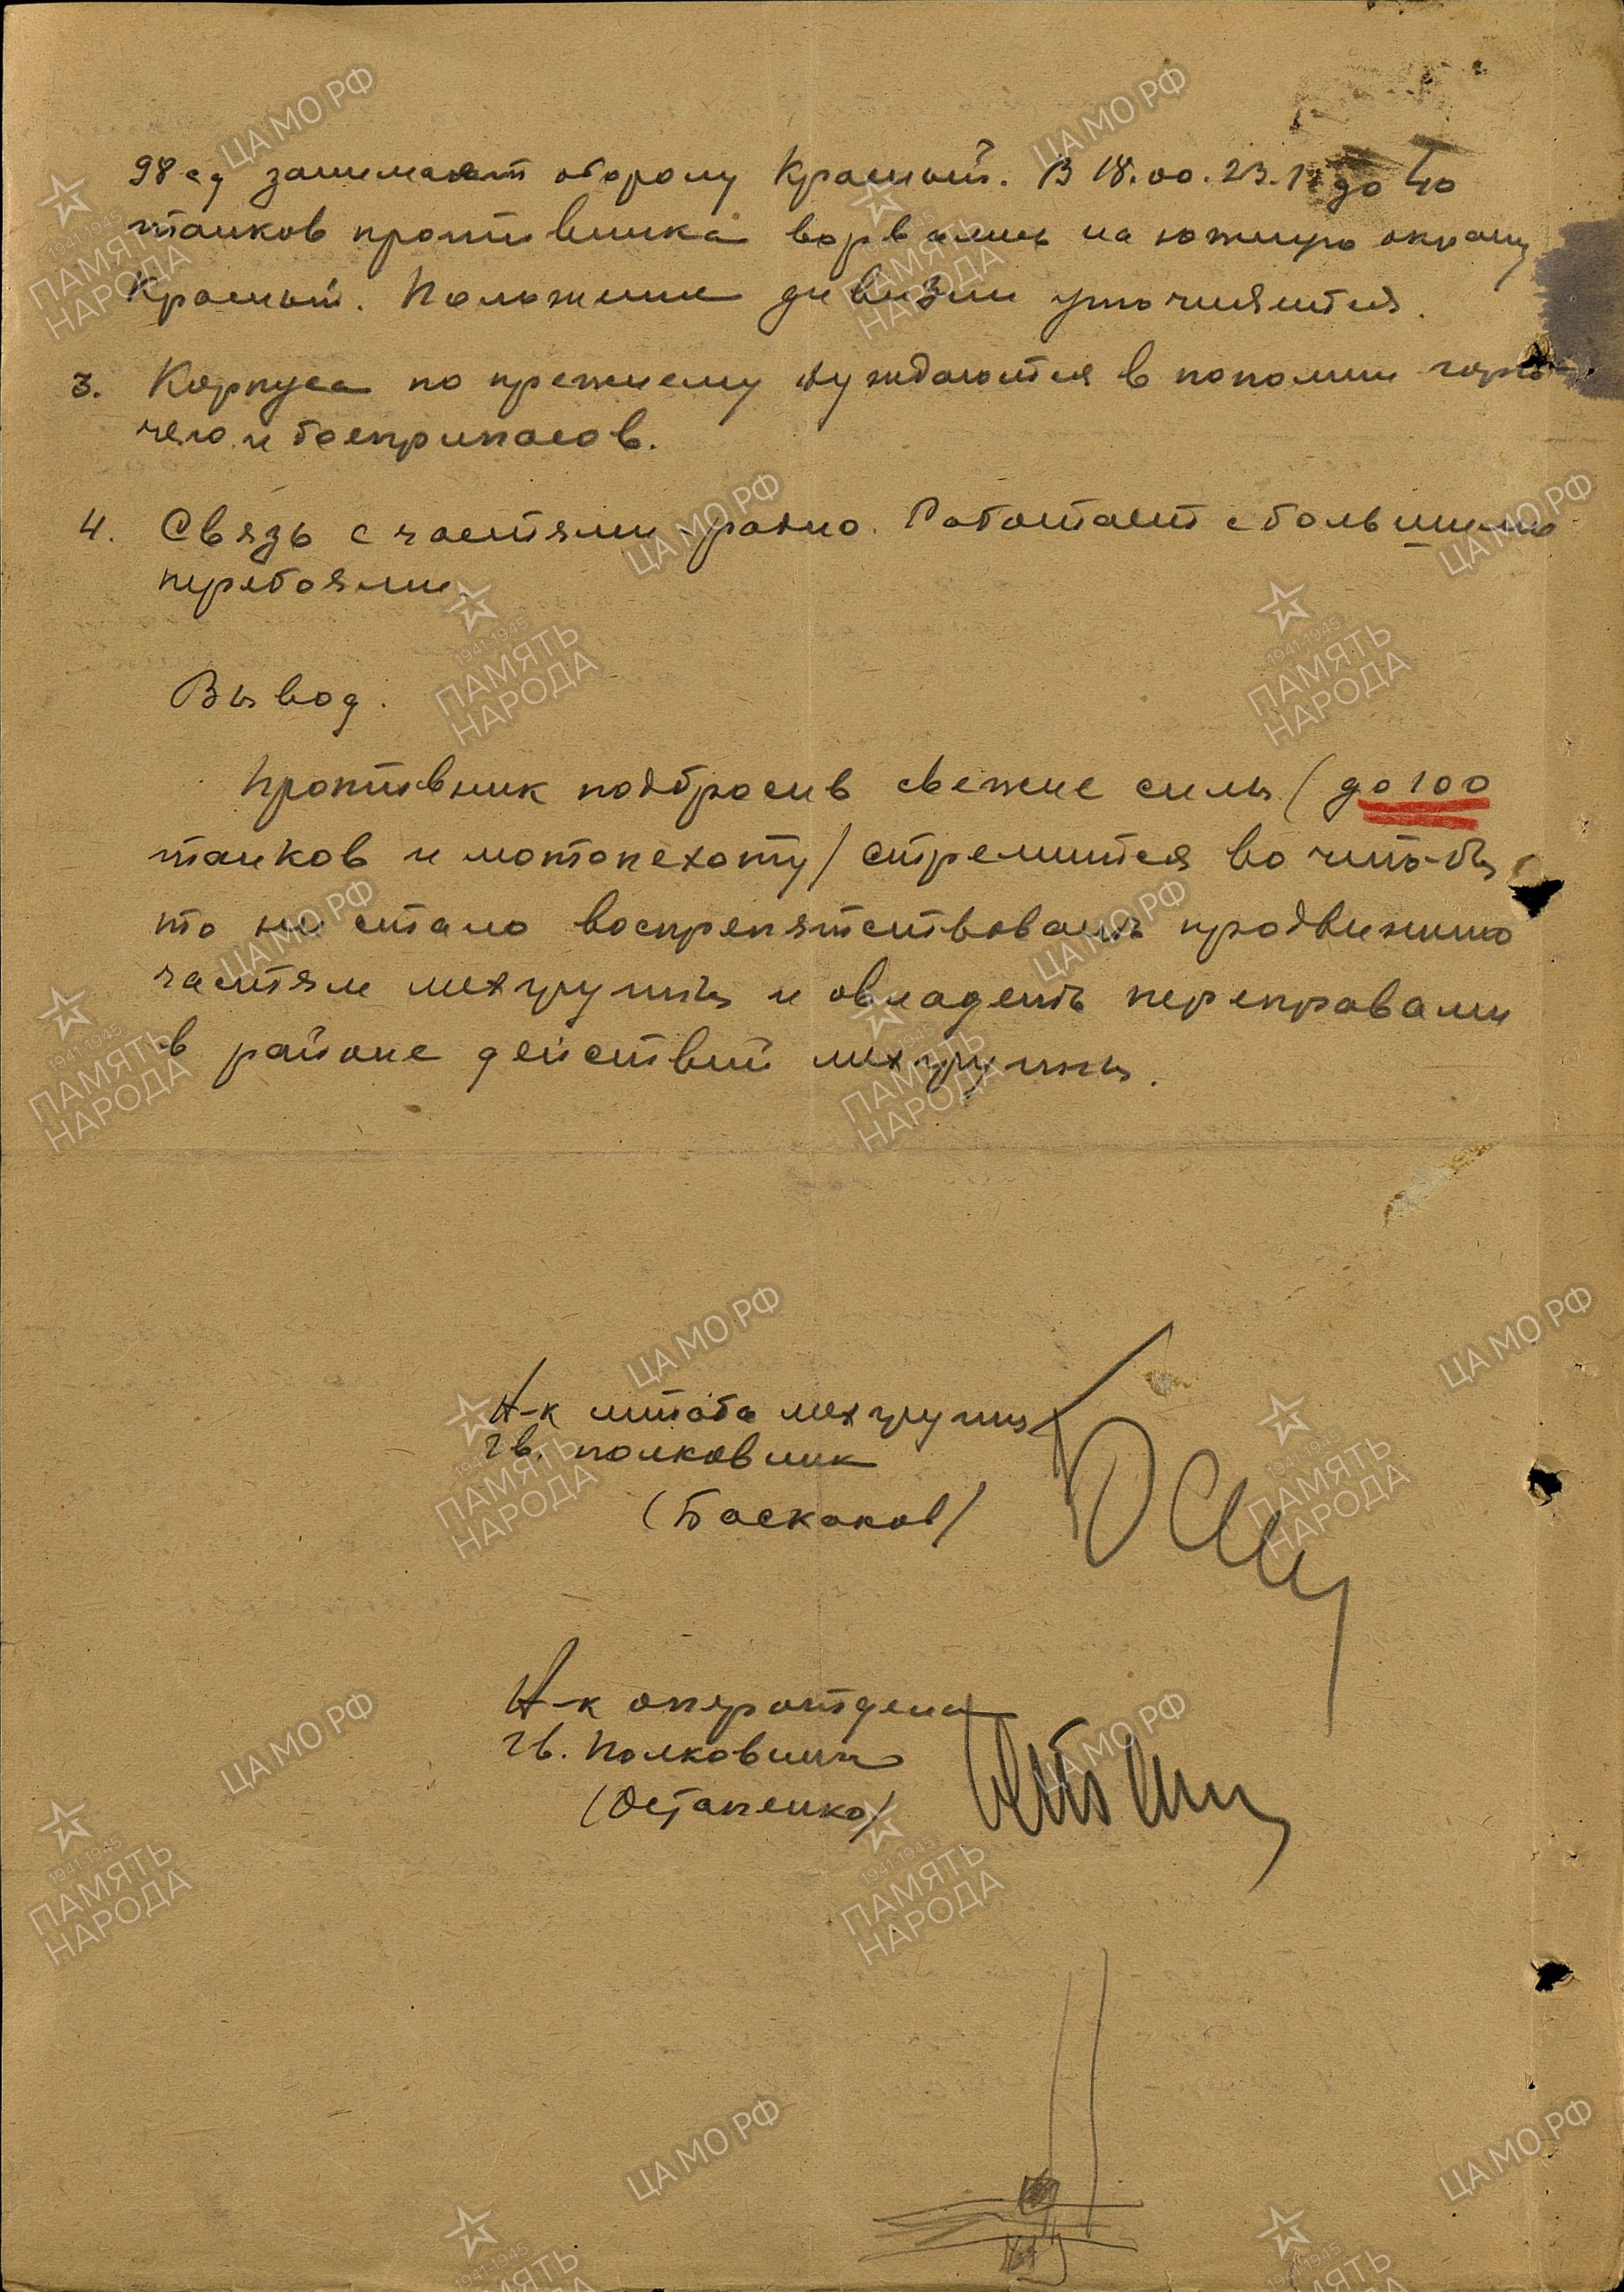 98 сд занимает оборону Красный. В 18.00. 23.12 до 40
танков противника ворвались на южную окраину
Красный. Положение дивизии уточняется.
3. Корпуса по прежнему нуждаются в пополнении горю-
чего и боеприпасов.
4. Связь с частями радио. Работает с большими
перебоями.
Вывод.
Противник подбросив свежие силы (до 100
танков и мотопехоту) стремится во чтобы
то ни стало воспрепятствовать продвижению
частям мехгруппы и овладеть переправами
в районе действий мехгруппы.
Н-к штаба мехгруппы
Гв. полковник
(Баскаков)
Н-к оперотдела
Гв. Полковник
(Остапенко)
ЦА МО РФ
1941-1945
ПАМЯТЬ
НАРОДА